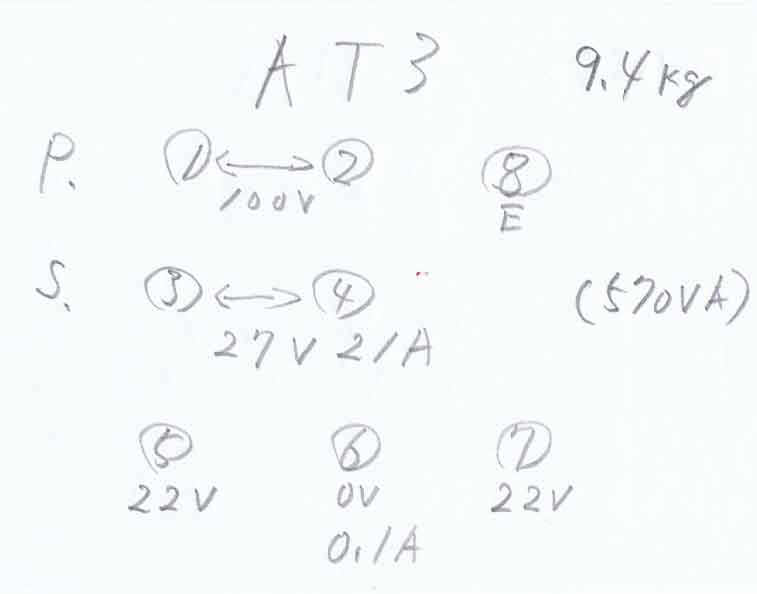 AT3 9.4kg
P. ① ↔ ② ⑧
100V E
S. ③ ↔ ④ (570VA)
27V 21A
⑤ ⑥ ⑦
22V 0V 22V
0.1A